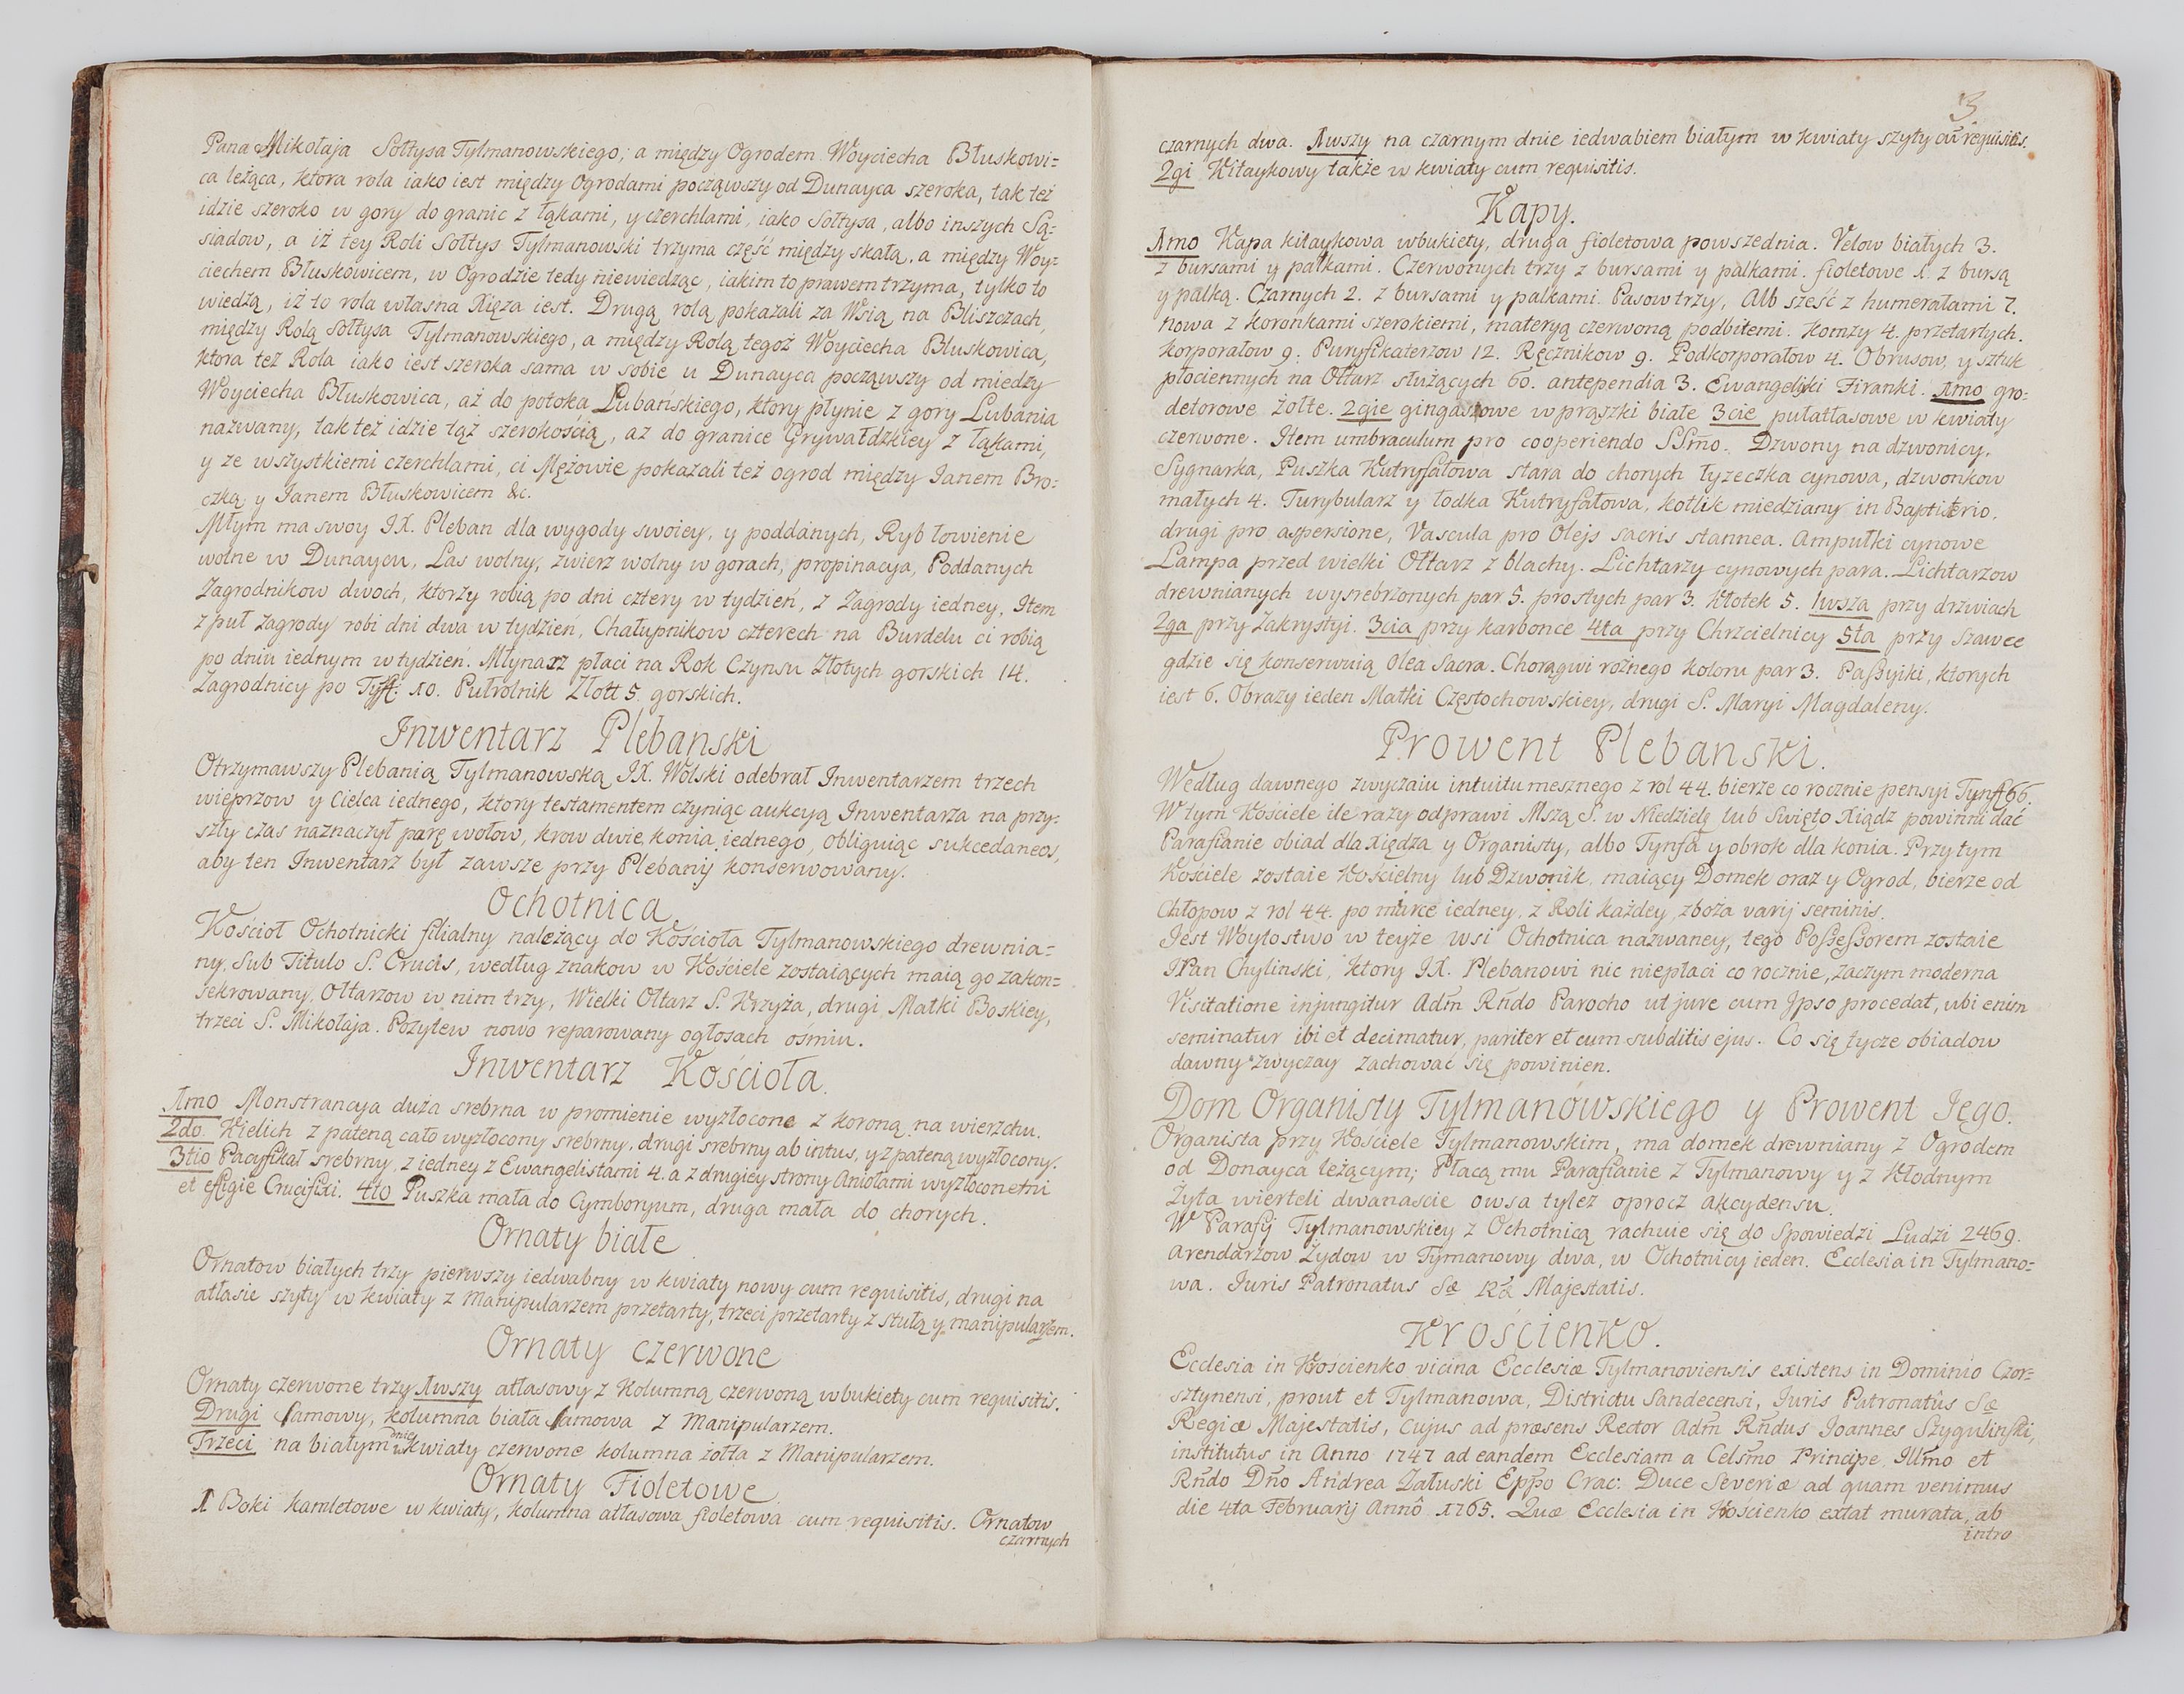 Pana Mikołaja Sołtysa Tylmanowskiego, a między Ogrodem Woyciecha Błuskowi=
ca leżąca, ktora rola iako iest między Ogrodami począwszy od Dunayca szeroka, tak też
idzie szeroko w gory do granic z łąkami, y czerchlami, iako Sołtysa, albo inszych Są=
siadow, a iż tey Roli Sołtys Tylmanowski trzyma część między skałą, a między Woy=
ciechem Błuskowicem, w Ogrodzie tedy niewiedząc, iakim to prawem trzyma, tylko to
wiedzą, iż to rola własna Xięza iest. Drugą rolą pokazali za Wsią na Bliszczach,
między Rolą Sołtysa Tylmanowskiego, a między Rolą tegoż Woyciecha Błuskowica,
ktora też Rola iako iest szeroka sama w sobie u Dunayca począwszy od miedzy
Woyciecha Błuskowica, aż do potoka Lubańskiego, ktory płynie z gory Lubania
nazwany, tak też idzie tąż szerokością, aż do granice Grywałdzkiey z łąkami,
y ze wszystkiemi czerchlami, ci Mężowie pokazali też ogrod między Ianem Bro=
czką y Ianem Błuskowicem &c.
Młyn ma swoy IX. Pleban dla wygody swoiey, y poddanych, Ryb łowienie
wolne w Dunaycu, Las wolny, zwierz wolny w gorach, propinacya, Poddanych
Zagrodnikow dwoch, ktorzy robią po dni cztery w tydzień, z Zagrody iedney. Item
z puł zagrody robi dni dwa w tydzień, Chałupnikow czterech na Burdelu ci robią
po dniu iednym w tydzień. Młynarz płaci na Rok Czynsu Złotych gorskich 14.
Zagrodnicy po Tyff: 10. Pułrolnik Zlott 5. gorskich.
Inwentarz Plebanski
Otrzymawszy Plebanią Tylmanowską IX. Wolski odebrał Inwentarzem trzech
wieprzow y Cielca iednego, ktory testamentem czyniąc aukcyą Inwentarza na przy=
szły czas naznaczył parę wołow, krow dwie, konia iednego, obliguiąc sukcedaneos,
aby ten Inwentarz był zawsze przy Plebanij konserwowany.
Ochotnica
Kościoł Ochotnicki filialny należący do Kościoła Tylmanowskiego drewnia=
ny, Sub Titulo S. Crucis, według znakow w Kościele zostaiących maią go zakon=
sekrowany, Ołtarzow w nim trzy, Wielki Oltarz S. Krzyża, drugi Matki Boskiey,
trzeci S. Mikołaja. Pozytew nowo reparowany ogłosach ośmiu.
Inwentarz Kościoła.
1mo Monstrancya duża srebrna w promienie wyzłocone z koroną na wierzchu.
2do Kielich z pateną cało wyzłocony srebrny, drugi srebrny ab intus, y z pateną wyzłocony.
3tio Pacyfikał srebrny, z iedney z Ewangelistami 4. a z drugiey strony Aniołami wyzłoconemi
et effigie Crucifixi. 4to Puszka mała do Cymboryum, druga mała do chorych.
Ornaty białe
Ornatow białych trzy pierwszy iedwabny w kwiaty nowy cum requisitis, drugi na
atłasie szyty w kwiaty z Manipularzem przetarty, trzeci przetarty z stułą y manipularzem.
Ornaty czerwone
Ornaty czerwone trzy 1wszy atłasowy z Kolumną czerwoną wbukiety cum requisitis.
Drugi lamowy, kolumna biała lamowa z Manipularzem.
Trzeci na białym dnie w kwiaty czerwone kolumna żółta z Manipularzem.
Ornaty Fioletowe
1 Boki kamletowe w kwiaty, kolumna atłasowa fioletowa cum requisitis. Ornatow
czarnych
3
czarnych dwa. 1wszy na czarnym dnie iedwabiem białym w kwiaty szyty cū requisitis.
2gi Kitaykowy także w kwiaty cum requisitis.
Kapy.
1mo Kapa kitaykowa wbukiety, druga fioletowa powszednia. Velow białych 3.
z bursami y palkami. Czerwonych trzy z bursami y palkami. fioletowe 1. z bursą
y palką. Czarnych 2. z bursami y palkami. Pasow trzy, Alb sześć z humerałami 7.
nowa z koronkami szerokiemi, materyą czerwoną podbitemi. Komży 4. przetartych.
Korporałow 9. Puryfikaterzow 12. Ręcznikow 9. Podkorporałow 4. Obrusow, y sztuk
płociennych na Ołtarz służących 60. antependia 3. Ewangeliki Firanki. 1mo gro=
detorowe żołte. 2gie gingasowe w prąszki białe 3cie pułatłasowe w kwiaty
czerwone. Item umbraculum pro cooperiendo SSmo. Dzwony na dzwonicy.
Sygnarka, Puszka Kutryfałowa stara do chorych łyzeczka cynowa, dzwonkow
małych 4. Turybularz y łodka Kutryfałowa, kotlik miedziany in Baptisterio.
drugi pro aspersione, Vascula pro Olejs sacris stannea. Ampułki cynowe
Lampa przed wielki Ołtarz z blachy. Lichtarzy cynowych para. Lichtarzow
drewnianych wysrebrzonych par 5. prostych par 3. Kłotek 5. 1wsza przy drzwiach
2ga przy Zakrystyi. 3cia przy karbonce 4ta przy Chrzcielnicy 5ta przy Szawce
gdzie się konserwuią Olea Sacra. Chorągwi rożnego koloru par 3. Paßyiki, ktorych
iest 6. Obrazy ieden Matki Częstochowskiey, drugi S. Maryi Magdaleny.
Prowent Plebanski.
Według dawnego zwyczaiu intuitu mesznego z rol 44. bierze co rocznie pensyi Tynff 66.
W tym Kościele ile razy odprawi Mszą S. w Niedzielę lub Swięto Xiądz powinni dać
Parafianie obiad dla Xiędza y Organisty, albo Tynfa y obrok dla konia. Przy tym
Kościele zostaie Kościelny lub Dzwonik, maiący Domek oraz y Ogrod, bierze od
Chłopow z rol 44. po miarce iedney, z Roli każdey, zboża varij seminis.
Jest Woytostwo w teyże wsi Ochotnica nazwaney, tego Poßeßorem zostaie
IPan Chylinski, ktory IX. Plebanowi nic niepłaci co rocznie, zaczym moderna
Visitatione injungitur Adm Rndo Parocho ut jure cum Jpso procedat, ubi enim
seminatur ibi et decimatur, pariter et cum subditis ejus. Co się tycze obiadow
dawny zwyczay zachować się powinien.
Dom Organisty Tylmanowskiego y Prowent Jego.
Organista przy Kościele Tylmanowskim, ma domek drewniany z Ogrodem
od Donayca leżącym; Płacą mu Parafianie z Tylmanowy y z Kłodnym
Żyta wierteli dwanascie owsa tylez oprocz akcydensu.
W Parafij Tylmanowskiey z Ochotnicą rachuie się do Spowiedzi Ludzi 2469.
Arendarzow Żydow w Tymanowy dwa, w Ochotnicy ieden. Ecclesia in Tylmano=
wa. Juris Patronatus Sæ Ræ Majestatis.
Krościenko.
Ecclesia in Krościenko vicina Ecclesiæ Tylmanoviensis existens in Dominio Czor=
sztynensi, prout et Tylmanowa, Districtu Sandecensi, Juris Patronatûs Sæ
Regiæ Majestatis, Cujus ad præsens Rector Adm Rndus Joannes Szygulinski,
institutus in Anno 1747 ad eandem Ecclesiam a Celsmo Principe Illmo et
Rndo Dno Andrea Załuski Eppo Crac: Duce Severiæ ad quam venimus
die 4ta Februarij Annô 1765. Quæ Ecclesia in Krościenko extat murata, ab
intro